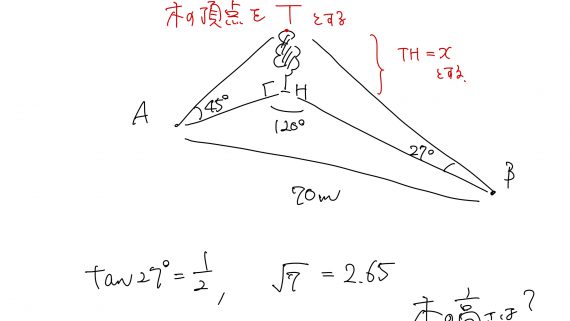 木の頂点を T とする
TH = x
とする
A
45°
H
120°
27°
B
70m
tan27° = 1/2, √7 = 2.65
木の高さは?